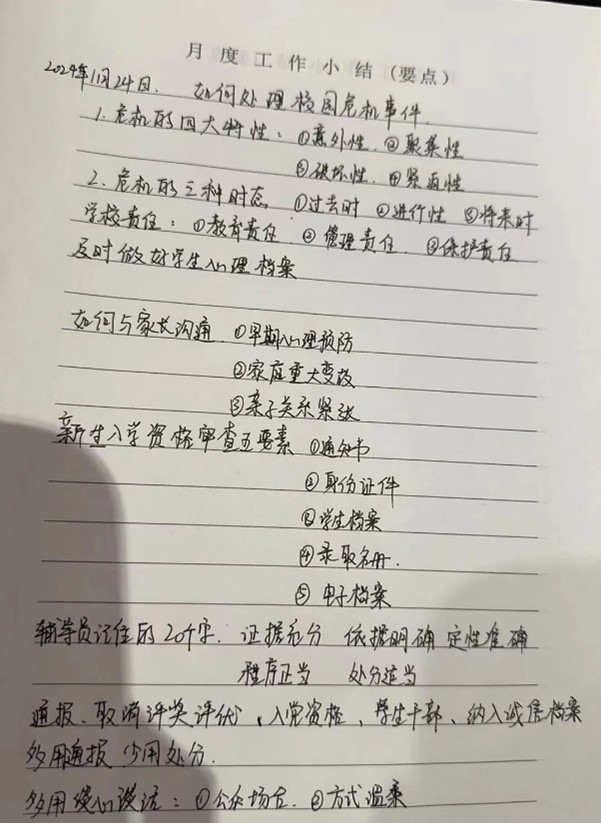 月度工作小结(要点)
2024年11月24日. 如何处理校园危机事件.
1. 危机的四大特性：①意外性. ②聚集性
③破坏性. ④紧迫性
2. 危机的三种时态 ①过去时 ②进行性 ③将来时
学校责任：①教育责任. ② 管理责任. ③保护责任
及时做好学生心理档案
如何与家长沟通 ①早期心理预防
②家庭重大变故
③亲子关系紧张
新生入学资格审查五要素 ①通知书
② 身份证件
③ 学生档案
④ 录取名册.
⑤ 电子档案
辅导员记住的20个字. 证据充分 依据明确 定性准确
程序正当 处分适当
通报、取消评奖评优、入党资格、学生干部、纳入诚信档案
多用通报 少用处分.
多用谈心谈话：①公众场合. ②方式温柔